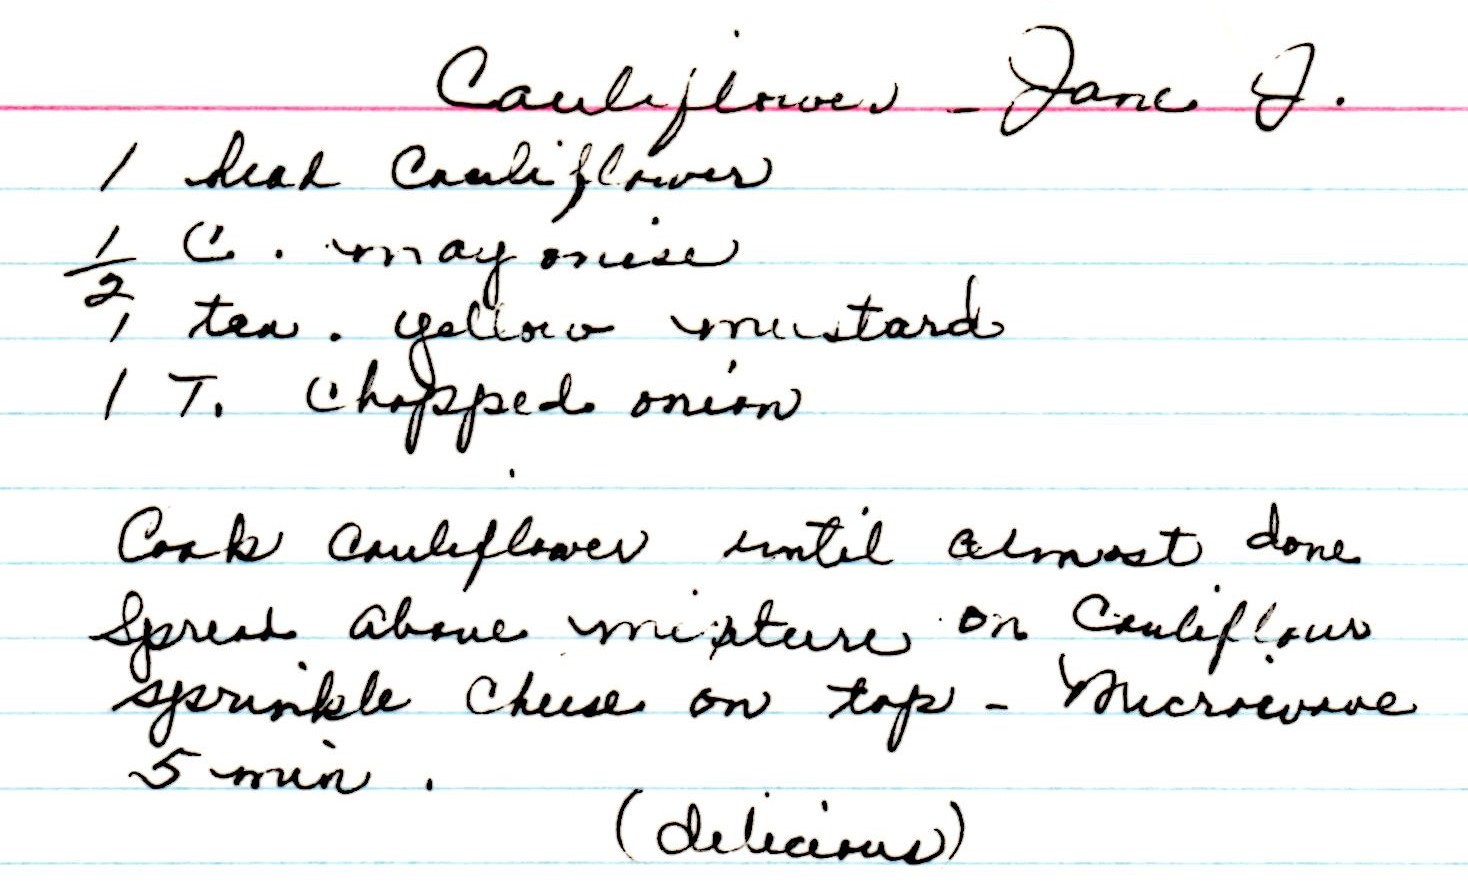 Cauliflower - Jane J.
1 head Cauliflower
1/2 C. mayonise
1 tea. yellow mustard
1 T. Chopped onion
Cook Cauliflower until almost done
Spread above mixture on Cauliflour
sprinkle Cheese on top - Microwave
5 min.
(delicious)